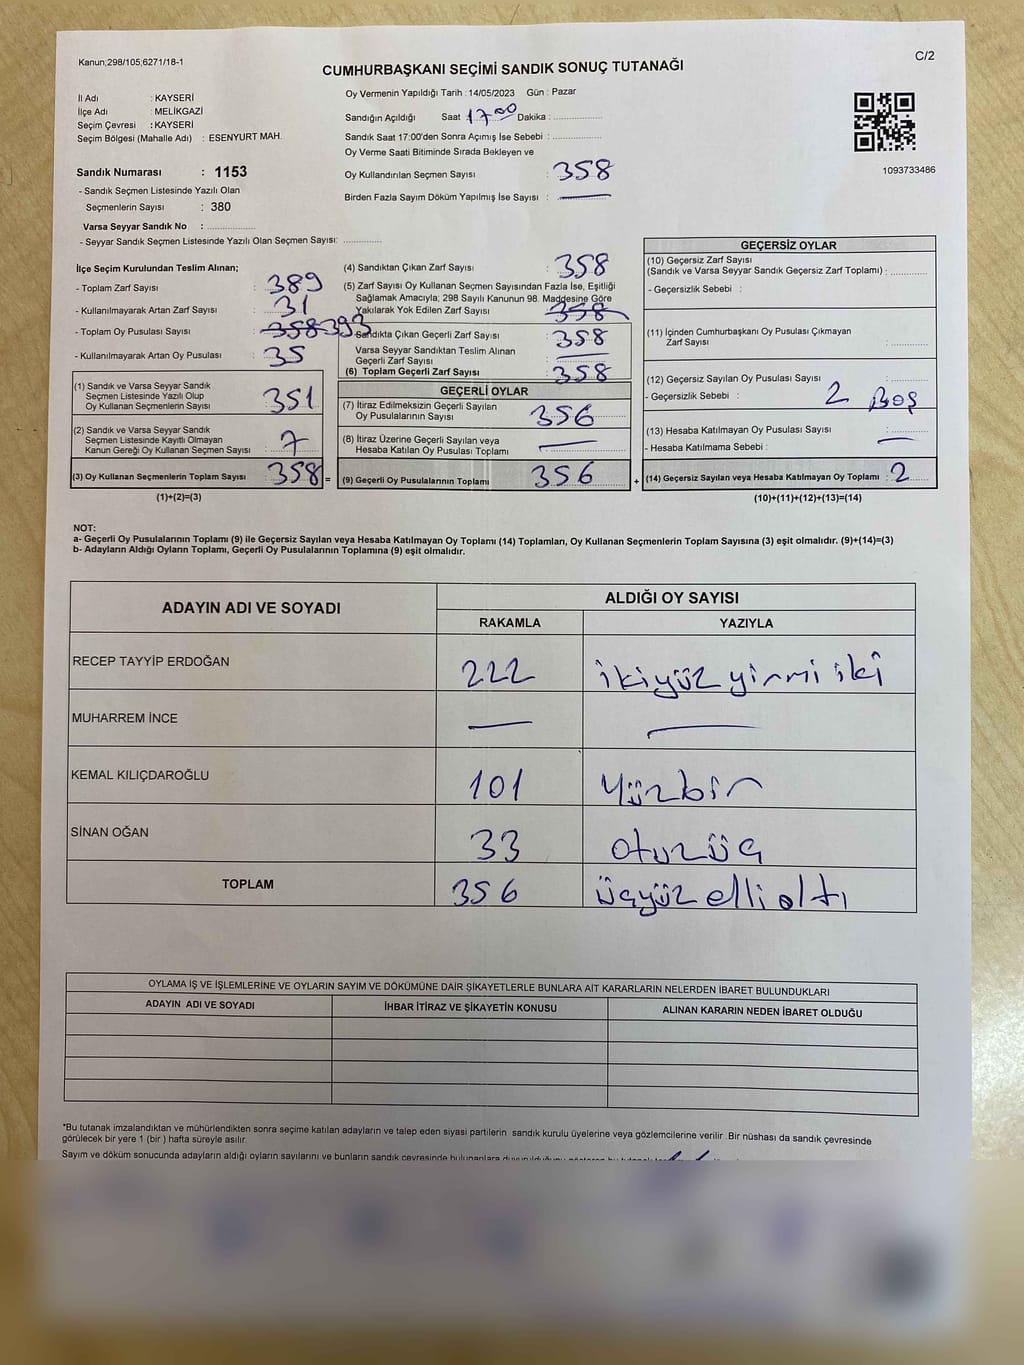 Kanun;298/105;6271/18-1
C/2
CUMHURBAŞKANI SEÇİMİ SANDIK SONUÇ TUTANAĞI
İl Adı : KAYSERİ
İlçe Adı : MELİKGAZİ
Seçim Çevresi : KAYSERİ
Seçim Bölgesi (Mahalle Adı) : ESENYURT MAH.
Sandık Numarası : 1153
- Sandık Seçmen Listesinde Yazılı Olan
Seçmenlerin Sayısı : 380
Varsa Seyyar Sandık No :
- Seyyar Sandık Seçmen Listesinde Yazılı Olan Seçmen Sayısı:
Oy Vermenin Yapıldığı Tarih : 14/05/2023 Gün : Pazar
Sandığın Açıldığı Saat 17:00 Dakika :
Sandık Saat 17:00'den Sonra Açımış İse Sebebi :
Oy Verme Saati Bitiminde Sırada Bekleyen ve
Oy Kullandırılan Seçmen Sayısı : 358
Birden Fazla Sayım Döküm Yapılmış İse Sayısı :
1093733486
İlçe Seçim Kurulundan Teslim Alınan;
- Toplam Zarf Sayısı : 389
- Kullanılmayarak Artan Zarf Sayısı : 31
- Toplam Oy Pusulası Sayısı : 358 393
- Kullanılmayarak Artan Oy Pusulası : 35
(1) Sandık ve Varsa Seyyar Sandık
Seçmen Listesinde Yazılı Olup
Oy Kullanan Seçmenlerin Sayısı : 351
(2) Sandık ve Varsa Seyyar Sandık
Seçmen Listesinde Kayıtlı Olmayan
Kanun Gereği Oy Kullanan Seçmen Sayısı : 7
(3) Oy Kullanan Seçmenlerin Toplam Sayısı : 358 =
(1)+(2)=(3)
(4) Sandıktan Çıkan Zarf Sayısı : 358
(5) Zarf Sayısı Oy Kullanan Seçmen Sayısından Fazla İse, Eşitliği
Sağlamak Amacıyla; 298 Sayılı Kanunun 98. Maddesine Göre
Yakılarak Yok Edilen Zarf Sayısı : 358
Sandıkta Çıkan Geçerli Zarf Sayısı : 358
Varsa Seyyar Sandıktan Teslim Alınan
Geçerli Zarf Sayısı :
(6) Toplam Geçerli Zarf Sayısı : 358
GEÇERLİ OYLAR
(7) İtiraz Edilmeksizin Geçerli Sayılan
Oy Pusulalarının Sayısı : 356
(8) İtiraz Üzerine Geçerli Sayılan veya
Hesaba Katılan Oy Pusulası Toplamı :
(9) Geçerli Oy Pusulalarının Toplamı : 356 +
GEÇERSİZ OYLAR
(10) Geçersiz Zarf Sayısı
(Sandık ve Varsa Seyyar Sandık Geçersiz Zarf Toplamı) :
- Geçersizlik Sebebi :
(11) İçinden Cumhurbaşkanı Oy Pusulası Çıkmayan
Zarf Sayısı :
(12) Geçersiz Sayılan Oy Pusulası Sayısı :
- Geçersizlik Sebebi : 2 Boş
(13) Hesaba Katılmayan Oy Pusulası Sayısı :
- Hesaba Katılmama Sebebi :
(14) Geçersiz Sayılan veya Hesaba Katılmayan Oy Toplamı : 2
(10)+(11)+(12)+(13)=(14)
NOT:
a- Geçerli Oy Pusulalarının Toplamı (9) ile Geçersiz Sayılan veya Hesaba Katılmayan Oy Toplamı (14) Toplamları, Oy Kullanan Seçmenlerin Toplam Sayısına (3) eşit olmalıdır. (9)+(14)=(3)
b- Adayların Aldığı Oyların Toplamı, Geçerli Oy Pusulalarının Toplamına (9) eşit olmalıdır.
ADAYIN ADI VE SOYADI ALDIĞI OY SAYISI
RAKAMLA YAZIYLA
RECEP TAYYİP ERDOĞAN 222 ikiyüz yirmi iki
MUHARREM İNCE
KEMAL KILIÇDAROĞLU 101 Yüzbir
SİNAN OĞAN 33 otuzüç
TOPLAM 356 üçyüz elli altı
OYLAMA İŞ VE İŞLEMLERİNE VE OYLARIN SAYIM VE DÖKÜMÜNE DAİR ŞİKAYETLERLE BUNLARA AİT KARARLARIN NELERDEN İBARET BULUNDUKLARI
ADAYIN ADI VE SOYADI İHBAR İTİRAZ VE ŞİKAYETİN KONUSU ALINAN KARARIN NEDEN İBARET OLDUĞU
*Bu tutanak imzalandıktan ve mühürlendikten sonra seçime katılan adayların ve talep eden siyasi partilerin sandık kurulu üyelerine veya gözlemcilerine verilir. Bir nüshası da sandık çevresinde
görülecek bir yere 1 (bir) hafta süreyle asılır.
Sayım ve döküm sonucunda adayların aldığı oyların sayılarını ve bunların sandık çevresinde bulunanlara